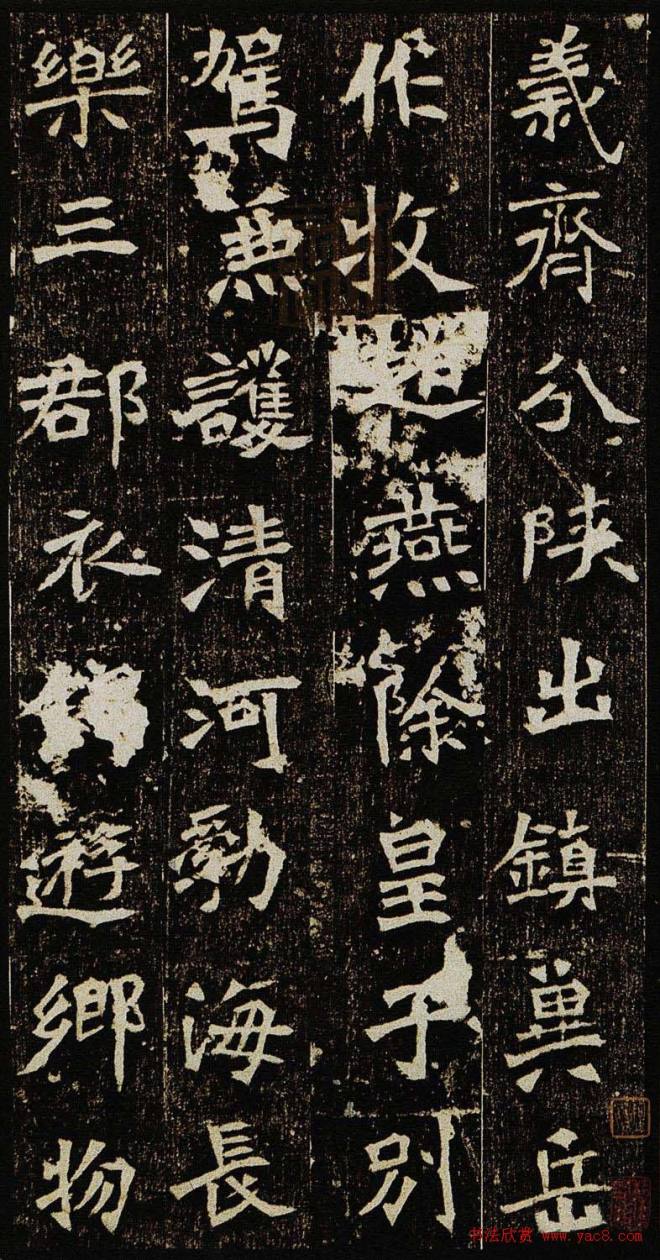 義齊分陝出鎮兾岳
作牧趙燕除皇子別
駕兼護清河勃海長
樂三郡衣錦遊鄉物
书法欣赏 www.yac8.com